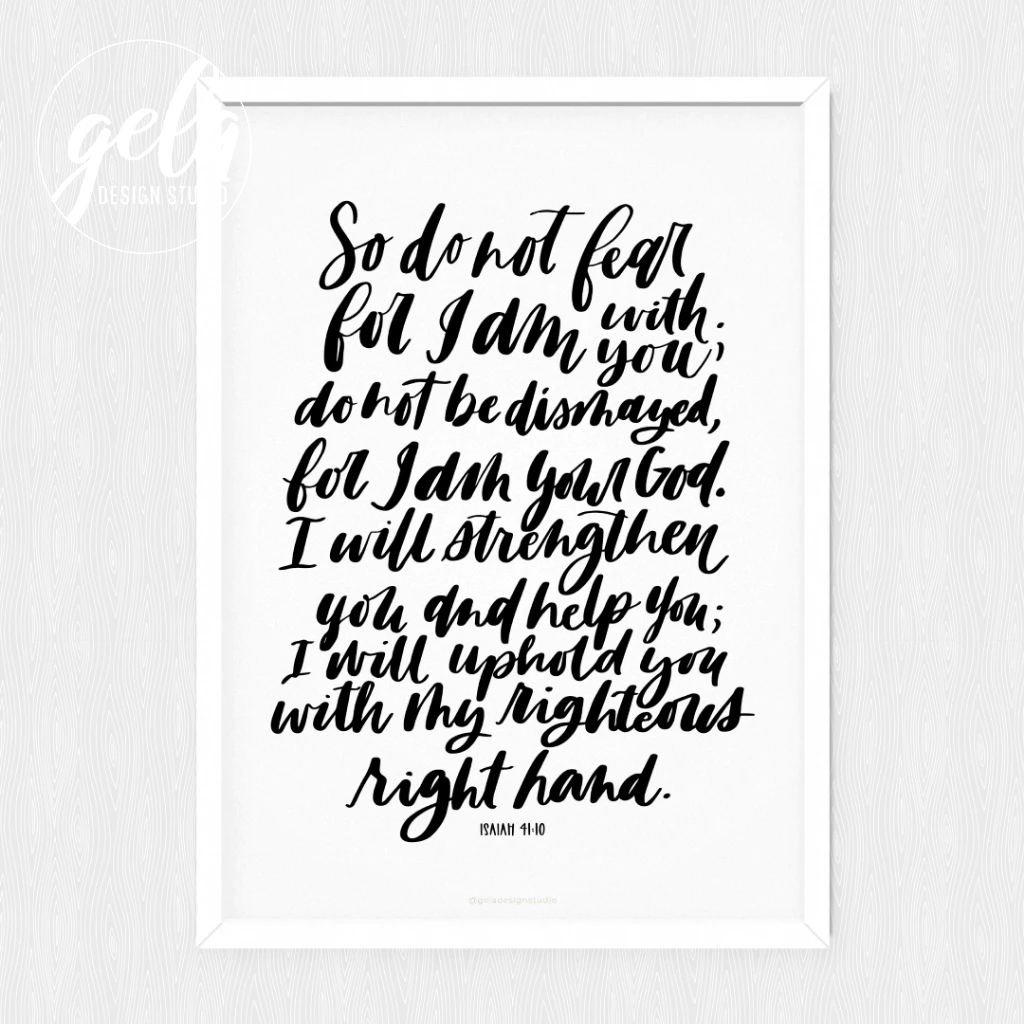 gela
DESIGN STUDIO
So do not fear
for I am with
you;
do not be dismayed,
for I am your God.
I will strengthen
you and help you;
I will uphold you
with my righteous
right hand.
ISAIAH 41:10
@geladesignstudio